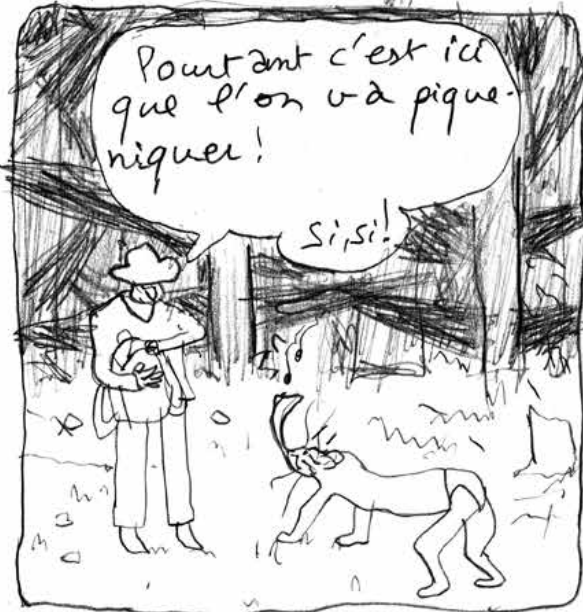 Pourtant c'est ici
que l'on va pique-
niquer!
si, si!